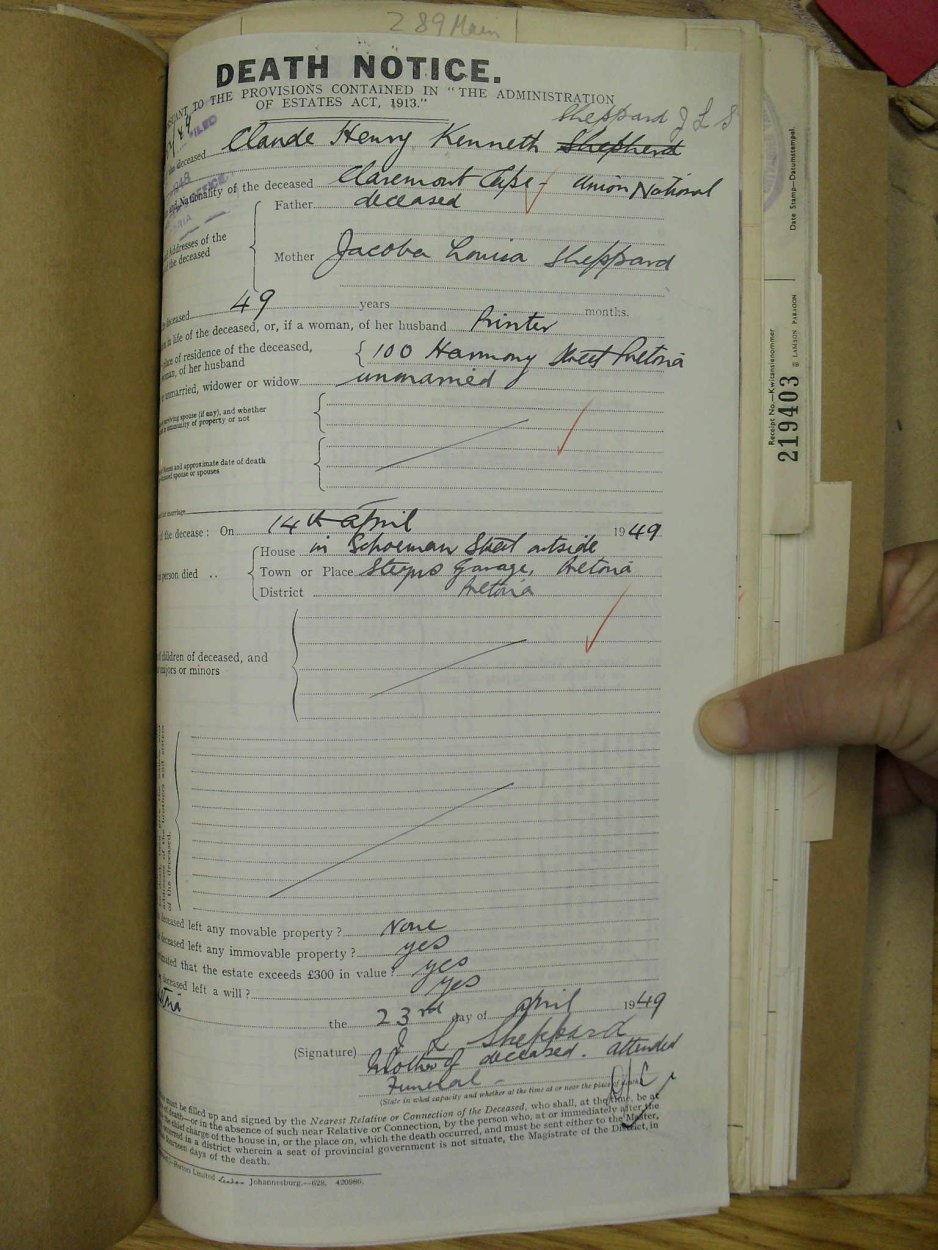 289 Main
DEATH NOTICE.
TO THE PROVISIONS CONTAINED IN "THE ADMINISTRATION
OF ESTATES ACT, 1913."
Sheppard J L S
deceased Claude Henry Kenneth Shepherd
Nationality of the deceased Claremont Cape - Union National
Father deceased
Addresses of the
the deceased
Mother Jacoba Louisa Sheppard
deceased 49 years months.
in life of the deceased, or, if a woman, of her husband Printer
place of residence of the deceased,
woman, of her husband
100 Harmony Street Pretoria
unmarried, widower or widow unmarried
surviving spouse (if any), and whether
in community of property or not
Names and approximate date of death
spouse or spouses
marriage
the decease: On 14th April 1949
House in Schoeman Street outside
person died .. Town or Place Steyns Garage, Pretoria
District Pretoria
of children of deceased, and
majors or minors
of the deceased.
deceased left any movable property? None
deceased left any immovable property? yes
estimated that the estate exceeds £300 in value? yes
deceased left a will? yes
the 23rd day of April 1949
(Signature) J L Sheppard
Mother of deceased. attended
Funeral -
(State in what capacity and whether at the time at or near the place of death.)
must be filled up and signed by the Nearest Relative or Connection of the Deceased, who shall, at the time, be at
of death—or in the absence of such near Relative or Connection, by the person who, at or immediately after the
charge of the house in, or the place on, which the death occurred, and must be sent either to the Master,
occurred in a district wherein a seat of provincial government is not situate, the Magistrate of the District, in
fourteen days of the death.
Limited Johannesburg.—628. 420986.
Date Stamp—Datumstempel.
Receipt No.—Kwitansienommer
219403
LAMSON PARAGON